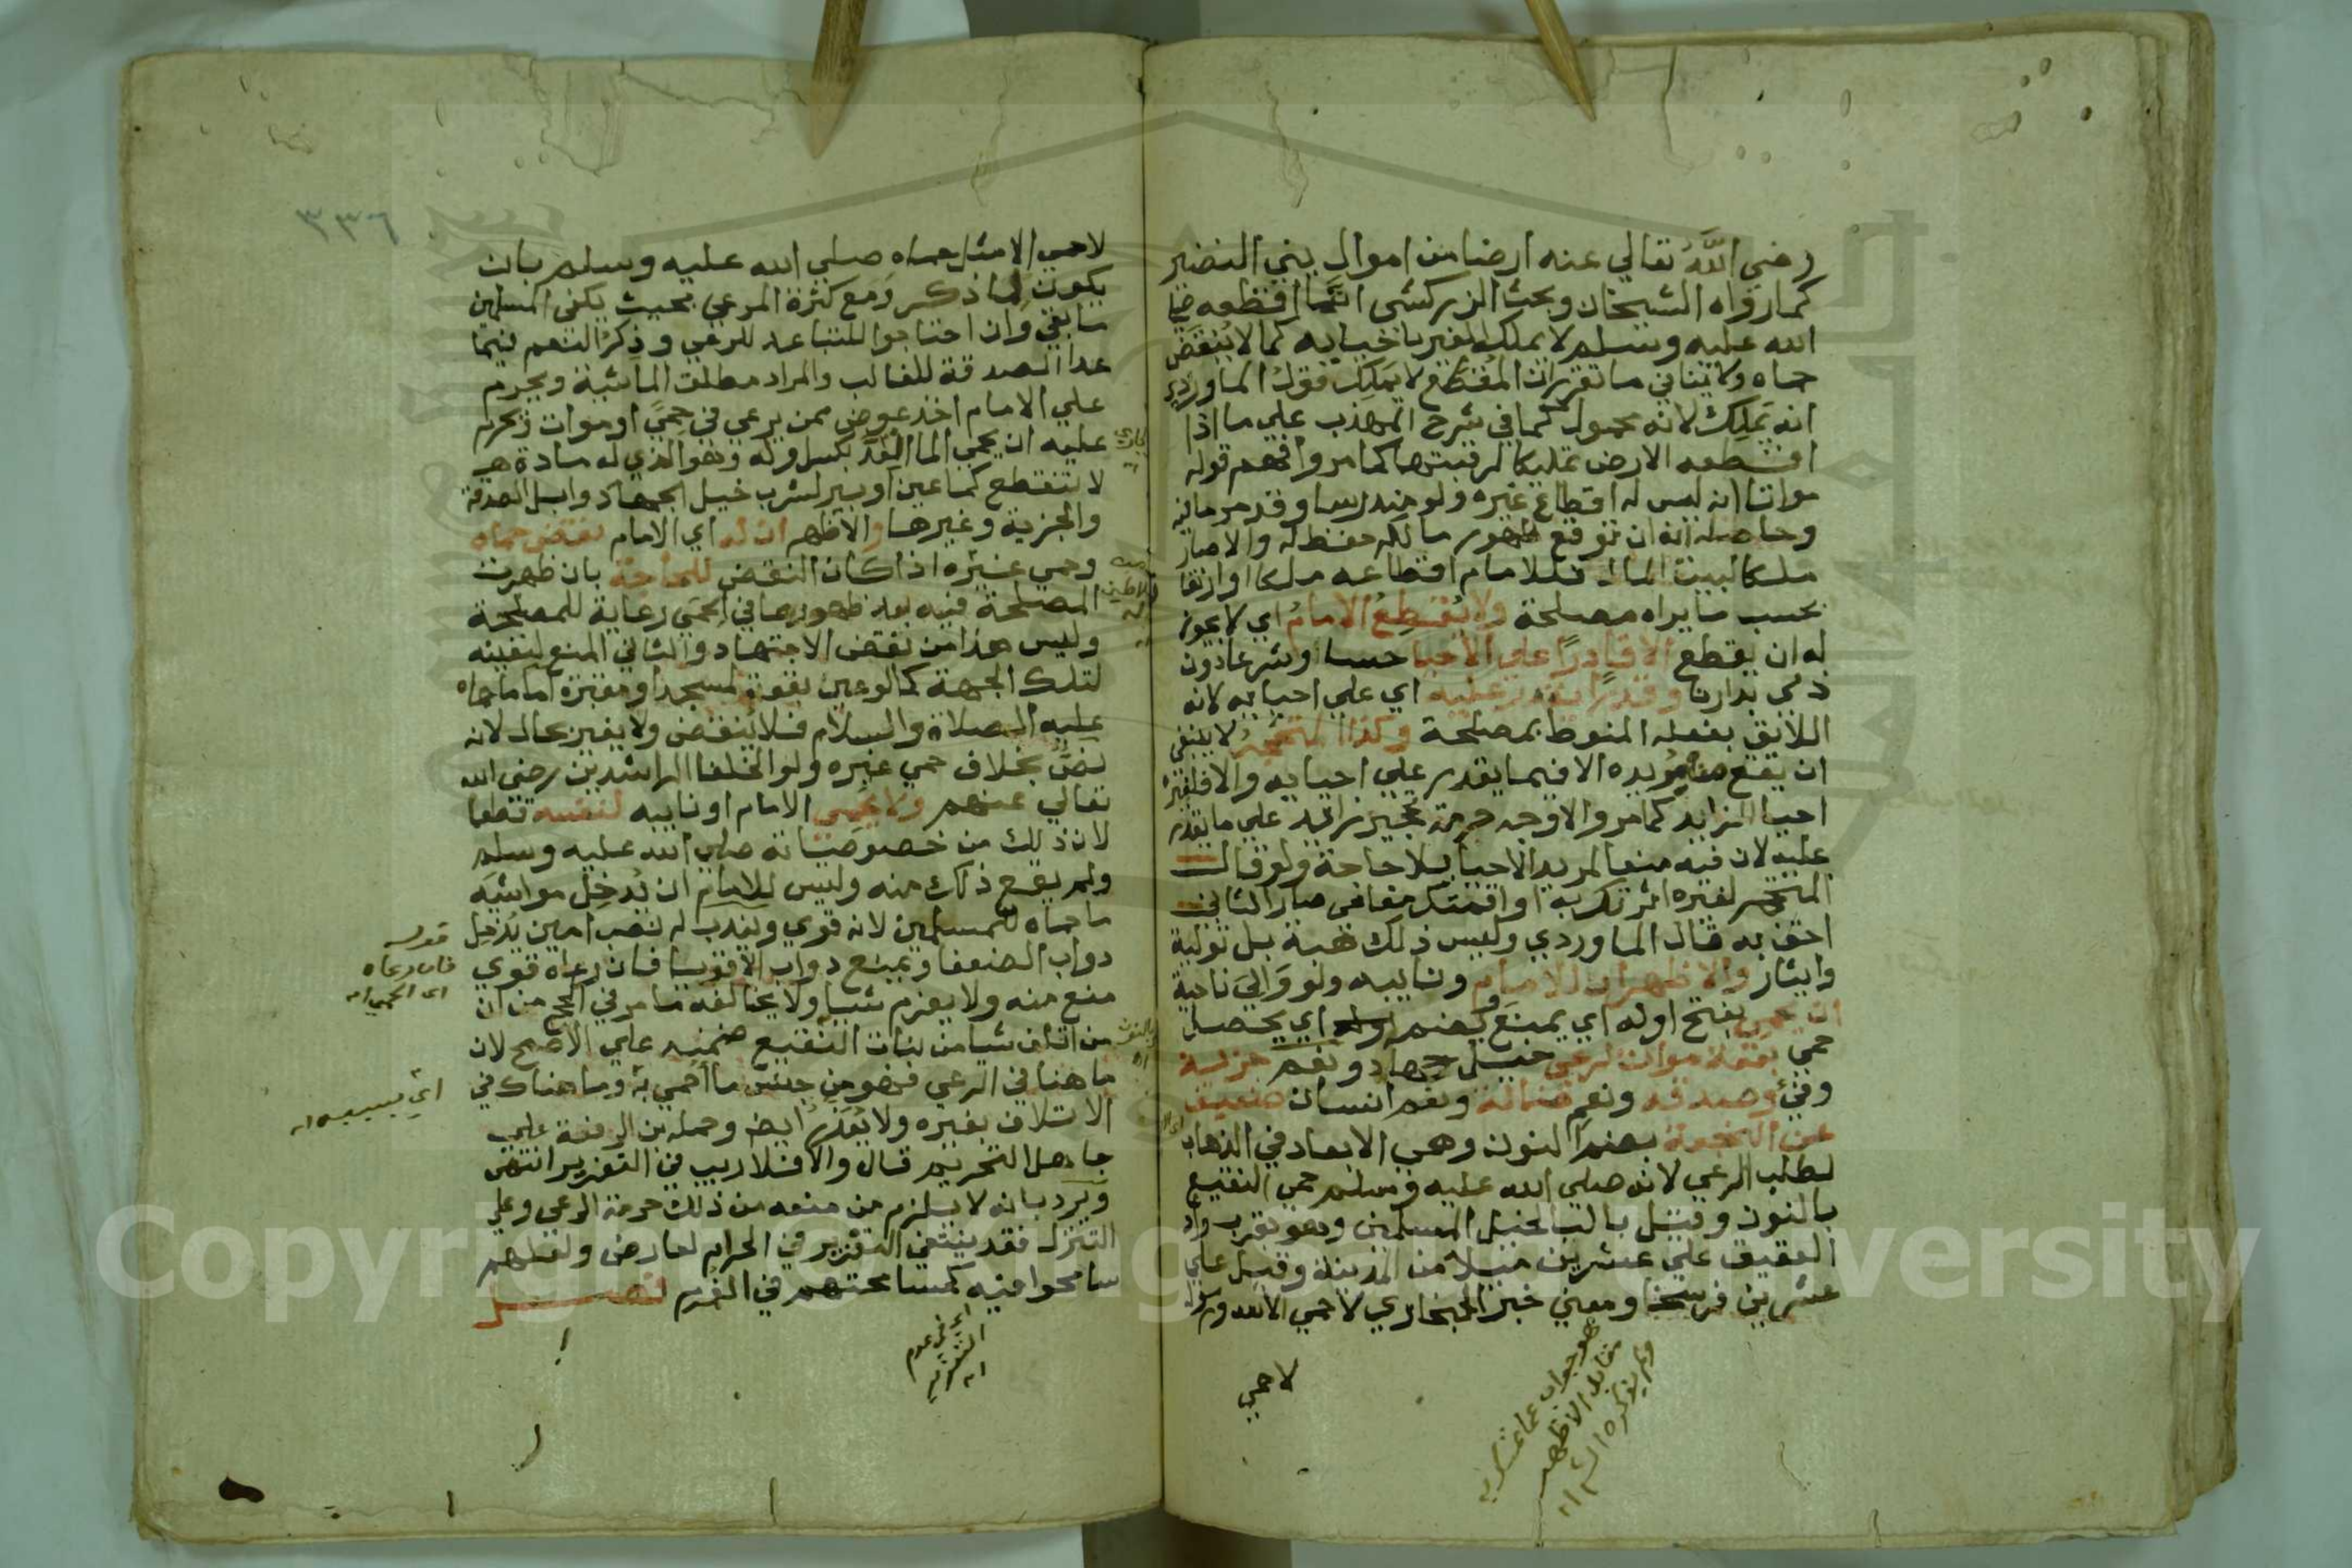 رضي الله تعالي عنه ارضا من اموال بني النضير
كما رواه الشيخان وبحث الزركشي ان ما اقطعه صلي
الله عليه وسلم لا يملكه الغير باحيايه كما لا ينقض
حماه ولا ينافي ما تقرر ان المقطع لا يملك قول الماوردي
انه يملك لانه محمول كما في شرح المهذب علي ما اذا
اقطعه الارض تمليكا لرقبتها كما مر وافهم قوله
مواتا انه ليس له اقطاع غيره ولو مندرسا وقد مر ما فيه
وحاصله انه ان توقع ظهور مالكه حفظ له والا صار
ملكا لبيت المال فللامام اقطاعه ملكا او ارتفاقا
بحسب ما يراه مصلحة ولا يقطع الامام اي لا يجوز
له ان يقطع الا قادرا علي الاحيا حسا وشرعا دون
ذمي بدارنا وقدرا يقدر عليه اي علي احيايه لانه
اللايق بفعله المنوط بمصلحة وكذا المتحجر لا ينبغي
ان يقع من مريده الا فيما يقدر علي احيايه والا فلغيره
احيا الزايد كما مر والاوجه حرمة تحجير زايد علي ما يقدر
عليه لان فيه منعا لمريد الاحيا بلا حاجة ولو قال
المتحجر لغيره اثرتك به او اقمتك مقامي صار الثاني
احق به قال الماوردي وليس ذلك هبة بل تولية
وايثار والاظهر ان للامام ونايبه ولو والي ناحية
ان يحمي بفتح اوله اي يمنع وبضمه اي يجعل
حمي بقعة موات لرعي خيل جهاد ونعم جزية
وفيء وصدقة ونعم ضالة ونعم انسان ضعيف
عن النجعة بضم النون وهي الابعاد في الذهاب
لطلب الرعي لانه صلي الله عليه وسلم حمي النقيع
بالنون وقيل بالبا لخيل المسلمين وهو بقرب وادي
العقيق علي عشرين ميلا من المدينة وقيل علي
عشرين فرسخا ومعني خبر البخاري لا حمي الا لله ورسوله
لا حمي
هو جواب عما تمسك به
مقابل الاظهر
ولم يذكره الشم اه
٣٣٦
لا حمي الا مثل حماه صلي الله عليه وسلم بان
يكون لما ذكر ومع كثرة المرعي بحيث يكفي المسلمين
ما بقي وان احتاجوا للتباعد للرعي وذكر النعم فيما
عدا الصدقة للغالب والمراد مطلق الماشية ويحرم
علي الامام اخذ عوض ممن يرعي في حمي او موات ويحرم
عليه ان يحمي الما العد بكسر اوله وهو الذي له مادة
لا تنقطع كما عين او بير لشرب خيل الجهاد وابل الصدقة
والجزية وغيرها والاظهر ان له اي الامام نقض حماه
وحمي غيره اذا كان النقض للحاجة بان ظهرت
المصلحة فيه بعد ظهورها في الحمي رعاية للمصلحة
وليس هذا من نقض الاجتهاد والثاني المنع لتعينه
لتلك الجهة كما لو عين بقعة لمسجد او مقبرة اما ما حماه
عليه الصلاة والسلام فلا ينقض ولا يغير بحال لانه
نص بخلاف حمي غيره ولو الخلفا الراشدين رضي الله
تعالي عنهم ولا يحمي الامام او نايبه لنفسه قطعا
لان ذلك من خصوصياته صلي الله عليه وسلم
ولم يقع ذلك منه وليس للامام ان يدخل مواشيه
ما حماه للمسلمين لانه قوي ويندب له نصب امين يدخل
دواب الضعفا ويمنع دواب الاقويا فان رعاه قوي
منع منه ولا يغرم شيا ولا يخالفه ما مر في الحج من ان
من اتلف شيا من نبات النقيع ضمنه علي الاصح لان
ما هنا في الرعي فهو من جنس ما احمي به وما هناك في
الاتلاف بغيره ولا يعزر ايضا وحمله ابن الرفعة علي
جاهل التحريم قال والا فلا ريب في التعزير انتهي
ويرد بانه لا يلزم من منعه من ذلك حرمة الرعي وعلي
التنزل فقد ينتفي التعزير في الحرام لعارض ولعلهم
سامحوا فيه كمسامحتهم في الغرم فصل
قوله
فان رعاه
اي الحمي اه
اي بسببه اه
اي في عدم
التعزير
اه